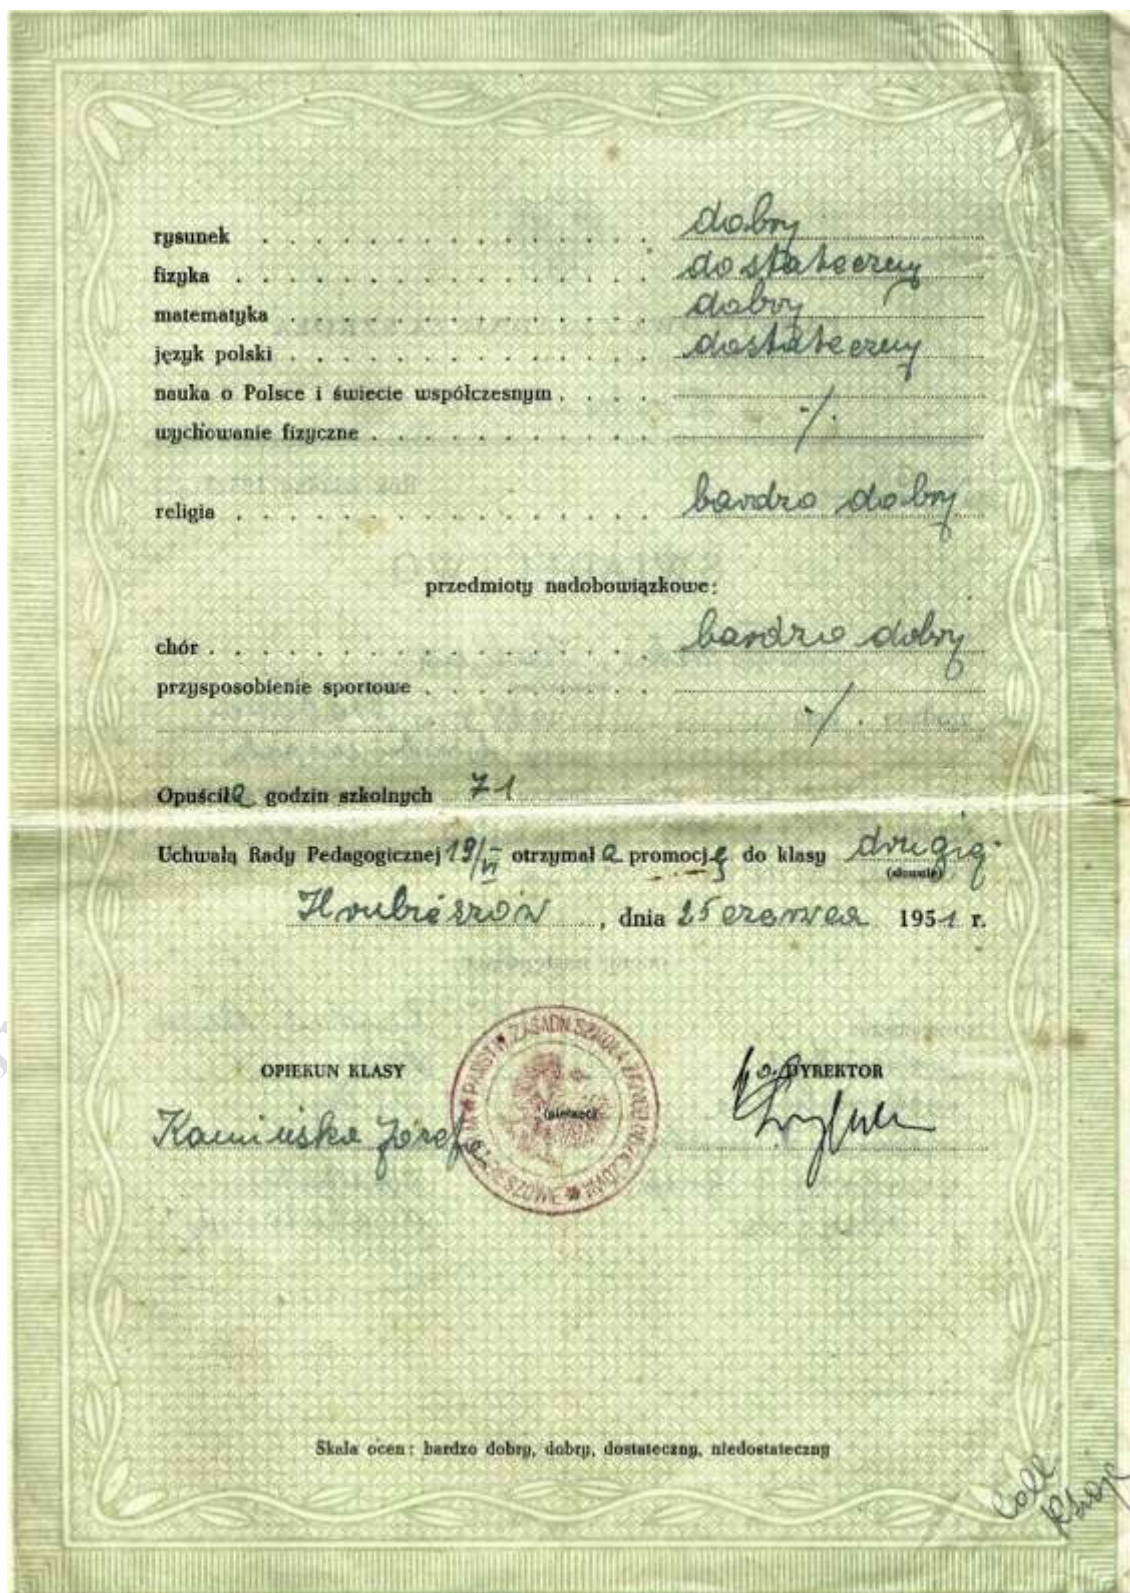 rysunek . . . . . . . . . . . . . . . . dobry
fizyka . . . . . . . . . . . . . . . . dostateczny
matematyka . . . . . . . . . . . . . . dobry
język polski . . . . . . . . . . . . . . dostateczny
nauka o Polsce i świecie współczesnym . . . .
wychowanie fizyczne . . . . . . . . . . . ./.
religia . . . . . . . . . . . . . . . . bardzo dobry
przedmioty nadobowiązkowe:
chór . . . . . . . . . . . . . . . . . bardzo dobry
przysposobienie sportowe . . . . . . . . .
./.
Opuściła godzin szkolnych 71
Uchwałą Rady Pedagogicznej 19/VI otrzymała promocję do klasy drugiej
(słownie)
Hrubieszów, dnia 25 czerwca 1951 r.
PAŃSTW. ZASADN. SZKOŁA
OPIEKUN KLASY
p.o. DYREKTOR
(pieczęć)
Kamińska Józefa
Skala ocen: bardzo dobry, dobry, dostateczny, niedostateczny